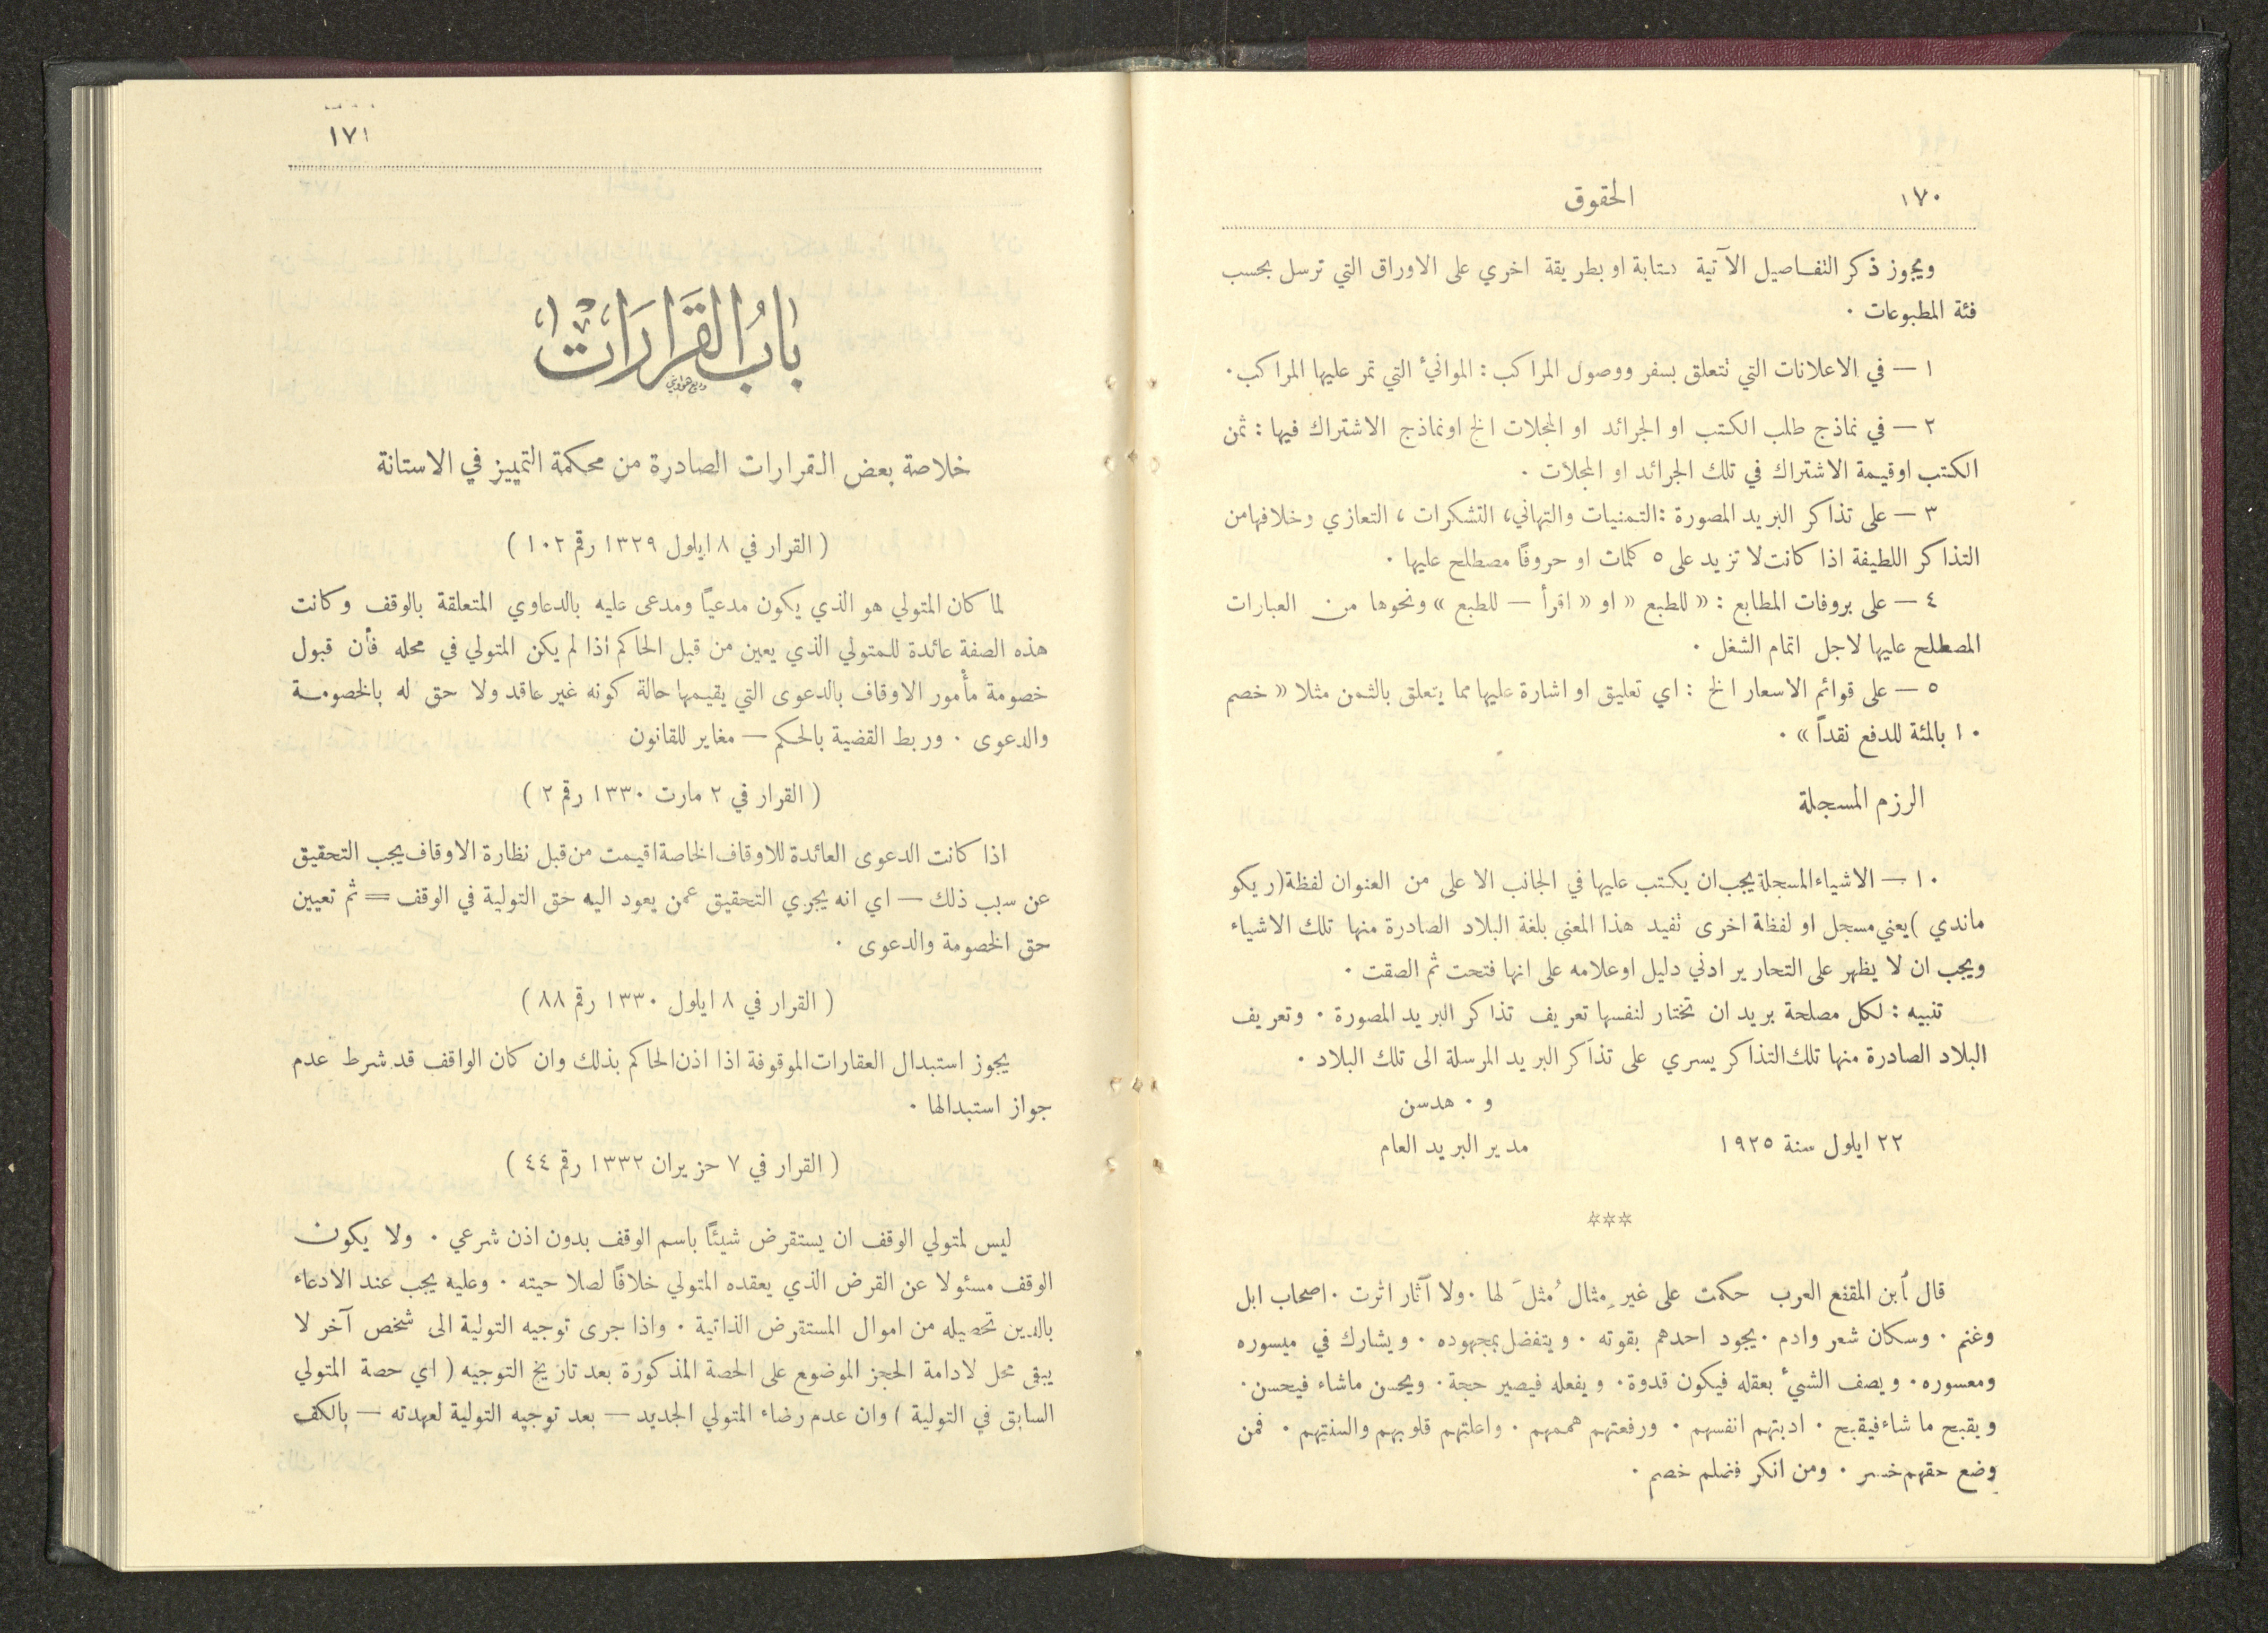 ١٧٠
الحقوق
ويجوز ذكر التفاصيل الآتية كتابة او بطريقة اخري على الاوراق التي ترسل بحسب
فئة المطبوعات ٠
١ — في الاعلانات التي تتعلق بسفر ووصول المراكب : الموانيء التي تمر عليها المراكب ٠
٢ — في نماذج طلب الكتب او الجرائد او المجلات الخ او نماذج الاشتراك فيها : ثمن
الكتب او قيمة الاشتراك في تلك الجرائد او المجلات ٠
٣ — على تذاكر البريد المصورة : التمنيات والتهاني، التشكرات ، التعازي وخلافها من
التذاكر اللطيفة اذا كانت لا تزيد على ٥ كلمات او حروفًا مصطلح عليها ٠
٤ — على بروفات المطابع : « للطبع » او « اقرأ — للطبع » ونحوها من العبارات
المصطلح عليها لاجل اتمام الشغل ٠
٥ — على قوائم الاسعار الخ : اي تعليق او اشارة عليها مما يتعلق بالثمن مثلا « خصم
١٠ بالمئة للدفع نقداً » ٠
الرزم المسجلة
١٠ — الاشياء المسجلة يجب ان يكتب عليها في الجانب الاعلى من العنوان لفظة (ريكو
ماندي ) يعني مسجل او لفظة اخرى تفيد هذا المعني بلغة البلاد الصادرة منها تلك الاشياء
ويجب ان لا يظهر على التحارير ادني دليل او علامه على انها فتحت ثم الصقت ٠
تنبيه : لكل مصلحة بريد ان تختار لنفسها تعريف تذاكر البريد المصورة ٠ وتعريف
البلاد الصادرة منها تلك التذاكر يسري على تذاكر البريد المرسلة الى تلك البلاد ٠
و ٠ هدسن
٢٢ ايلول سنة ١٩٢٥ مدير البريد العام
***
قال أبن المقفع العرب حكمت على غير مِثال مُثلَ لها ٠ ولا آثار اثرت ٠ اصحاب ابل
وغنم ٠ وسكان شعر وادم ٠ يجود احدهم بقوته ٠ ويتفضل بمجهوده ٠ ويشارك في ميسوره
ومعسوره ٠ ويصف الشيء بعقله فيكون قدوة ٠ ويفعله فيصير حجة ٠ ويحسن ماشاء فيحسن ٠
ويقبح ما شاء فيقبح ٠ ادبتهم انفسهم ٠ ورفعتهم هممهم ٠ واعلتهم قلوبهم والسنتهم ٠ فمن
وضع حقهم خسر ٠ ومن انكر فضلهم خصم ٠
١٧١
باب القرارات
خلاصة بعض القرارات الصادرة من محكمة التمييز في الاستانة
( القرار في ٨ ايلول ١٣٢٩ رقم ١٠٢ )
لما كان المتولي هو الذي يكون مدعيًا ومدعى عليه بالدعاوي المتعلقة بالوقف وكانت
هذه الصفة عائدة للمتولي الذي يعين من قبل الحاكم اذا لم يكن المتولي في محله فأن قبول
خصومة مأمور الاوقاف بالدعوى التي يقيمها حالة كونه غير عاقد ولا حق له بالخصومة
والدعوى ٠ وربط القضية بالحكم — مغاير للقانون
( القرار في ٢ مارت ١٣٣٠ رقم ٢ )
اذا كانت الدعوى العائدة للاوقاف الخاصة اقيمت من قبل نظارة الاوقاف يجب التحقيق
عن سبب ذلك — اي انه يجري التحقيق عمن يعود اليه حق التولية في الوقف = ثم تعيين
حق الخصومة والدعوى ٠
( القرار في ٨ ايلول ١٣٣٠ رقم ٨٨ )
يجوز استبدال العقارات الموقوفة اذا اذن الحاكم بذلك وان كان الواقف قد شرط عدم
جواز استبدالها ٠
( القرار في ٧ حزيران ١٣٣٢ رقم ٤٤ )
ليس لمتولي الوقف ان يستقرض شيئًا باسم الوقف بدون اذن شرعي ٠ ولا يكون
الوقف مسئولا عن القرض الذي يعقده المتولي خلافًا لصلاحيته ٠ وعليه يجب عند الادعاء
بالدين تحصيله من اموال المستقرض الذاتية ٠ واذا جرى توجيه التولية الى شخص آخر لا
يبقى محل لادامة الحجز الموضوع على الحصة المذكورة بعد تاريخ التوجيه ( اي حصة المتولي
السابق في التولية ) وان عدم رضاء المتولي الجديد — بعد توجيه التولية لعهدته — بالكف